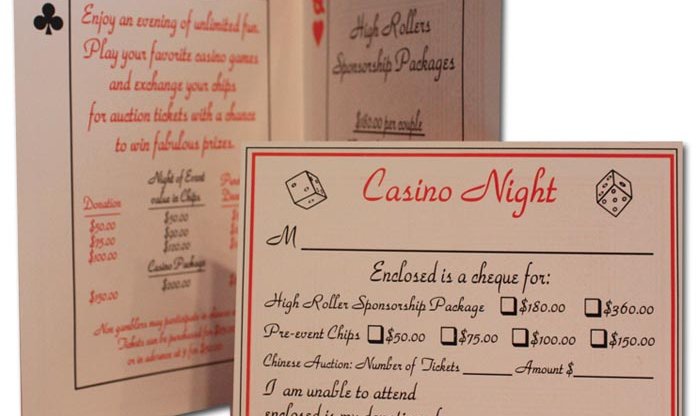 Enjoy an evening of unlimited fun.
Play your favorite casino games
and exchange your chips
for auction tickets with a chance
to win fabulous prizes.
Donation
$50.00
$75.00
$100.00
$150.00
Night of Event
value in Chips
$50.00
$90.00
$120.00
Casino Package
$200.00
Non gamblers may participate in chinese
Tickets can be purchased for
or in advance at
High Rollers
Sponsorship Packages
$180.00 per couple
Casino Night
M
Enclosed is a cheque for:
High Roller Sponsorship Package $180.00 $360.00
Pre-event Chips $50.00 $75.00 $100.00 $150.00
Chinese Auction: Number of Tickets ______ Amount $______
I am unable to attend
enclosed is my donation of